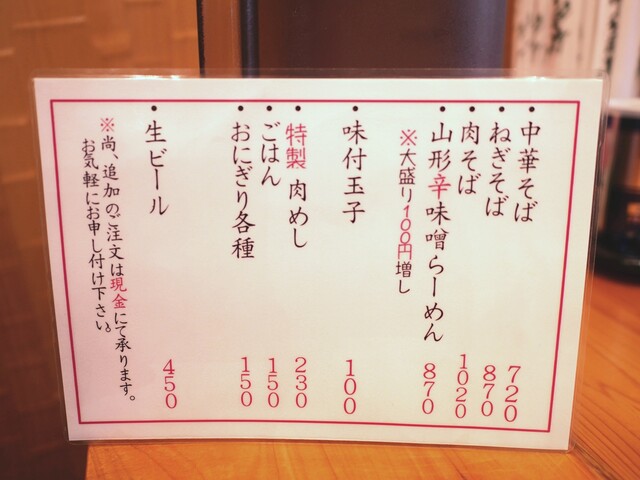 中華そば 720
ねぎそば 870
肉そば 1020
山形辛味噌らーめん 870
※大盛り100円増し
味付玉子 100
特製 肉めし 230
ごはん 150
おにぎり各種 150
生ビール 450
※尚、追加のご注文は現金にて承ります。
お気軽にお申し付け下さい。